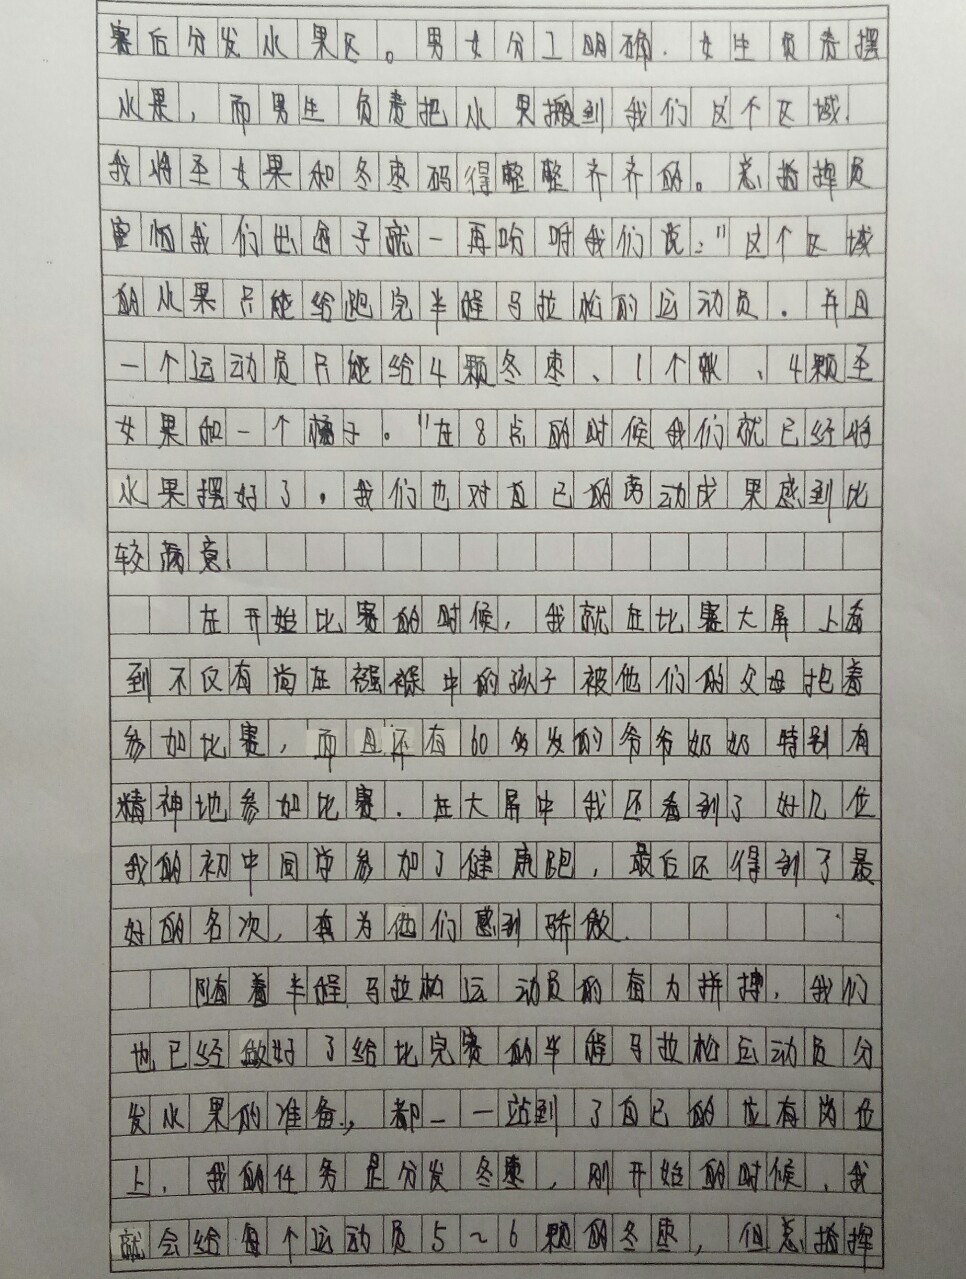 赛后分发水果区。男女分工明确，女生负责摆
水果，而男生负责把水果搬到我们这个区域，
我将圣女果和冬枣码得整整齐齐的。总指挥员
害怕我们出岔子就一再吩咐我们说："这个区域
的水果只能给跑完半程马拉松的运动员。并且
一个运动员只能给4颗冬枣、1个梨、4颗圣
女果和一个橘子。"在8点的时候我们就已经将
水果摆好了，我们也对自己的劳动成果感到比
较满意。
在开始比赛的时候，我就在比赛大屏上看
到不仅有尚在襁褓中的孩子被他们的父母抱着
参加比赛，而且还有60多岁的爷爷奶奶特别有
精神地参加比赛。在大屏中我还看到了好几位
我的初中同学参加了健康跑，最后还得到了最
好的名次，真为他们感到骄傲。
随着半程马拉松运动员的奋力拼搏，我们
也已经做好了给比完赛的半程马拉松运动员分
发水果的准备，都一一站到了自己的位有岗位
上，我的任务是分发冬枣，刚开始的时候，我
就会给每个运动员5~6颗的冬枣，但总指挥